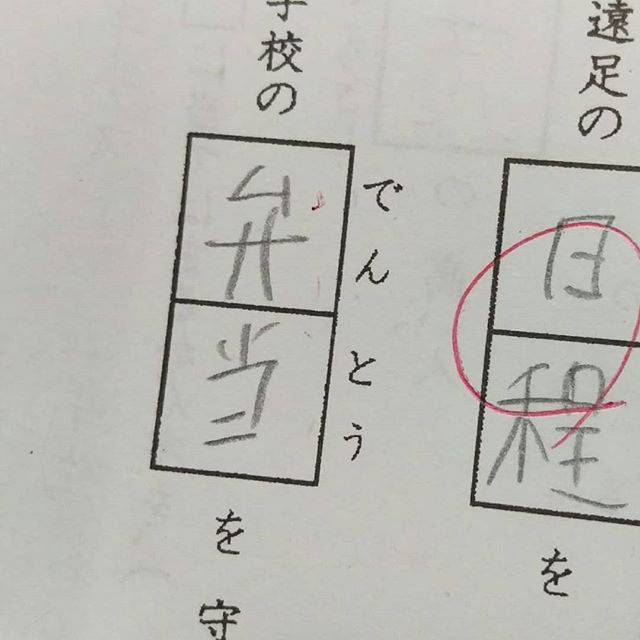 遠足の日程を
学校の弁当を守
でんとう